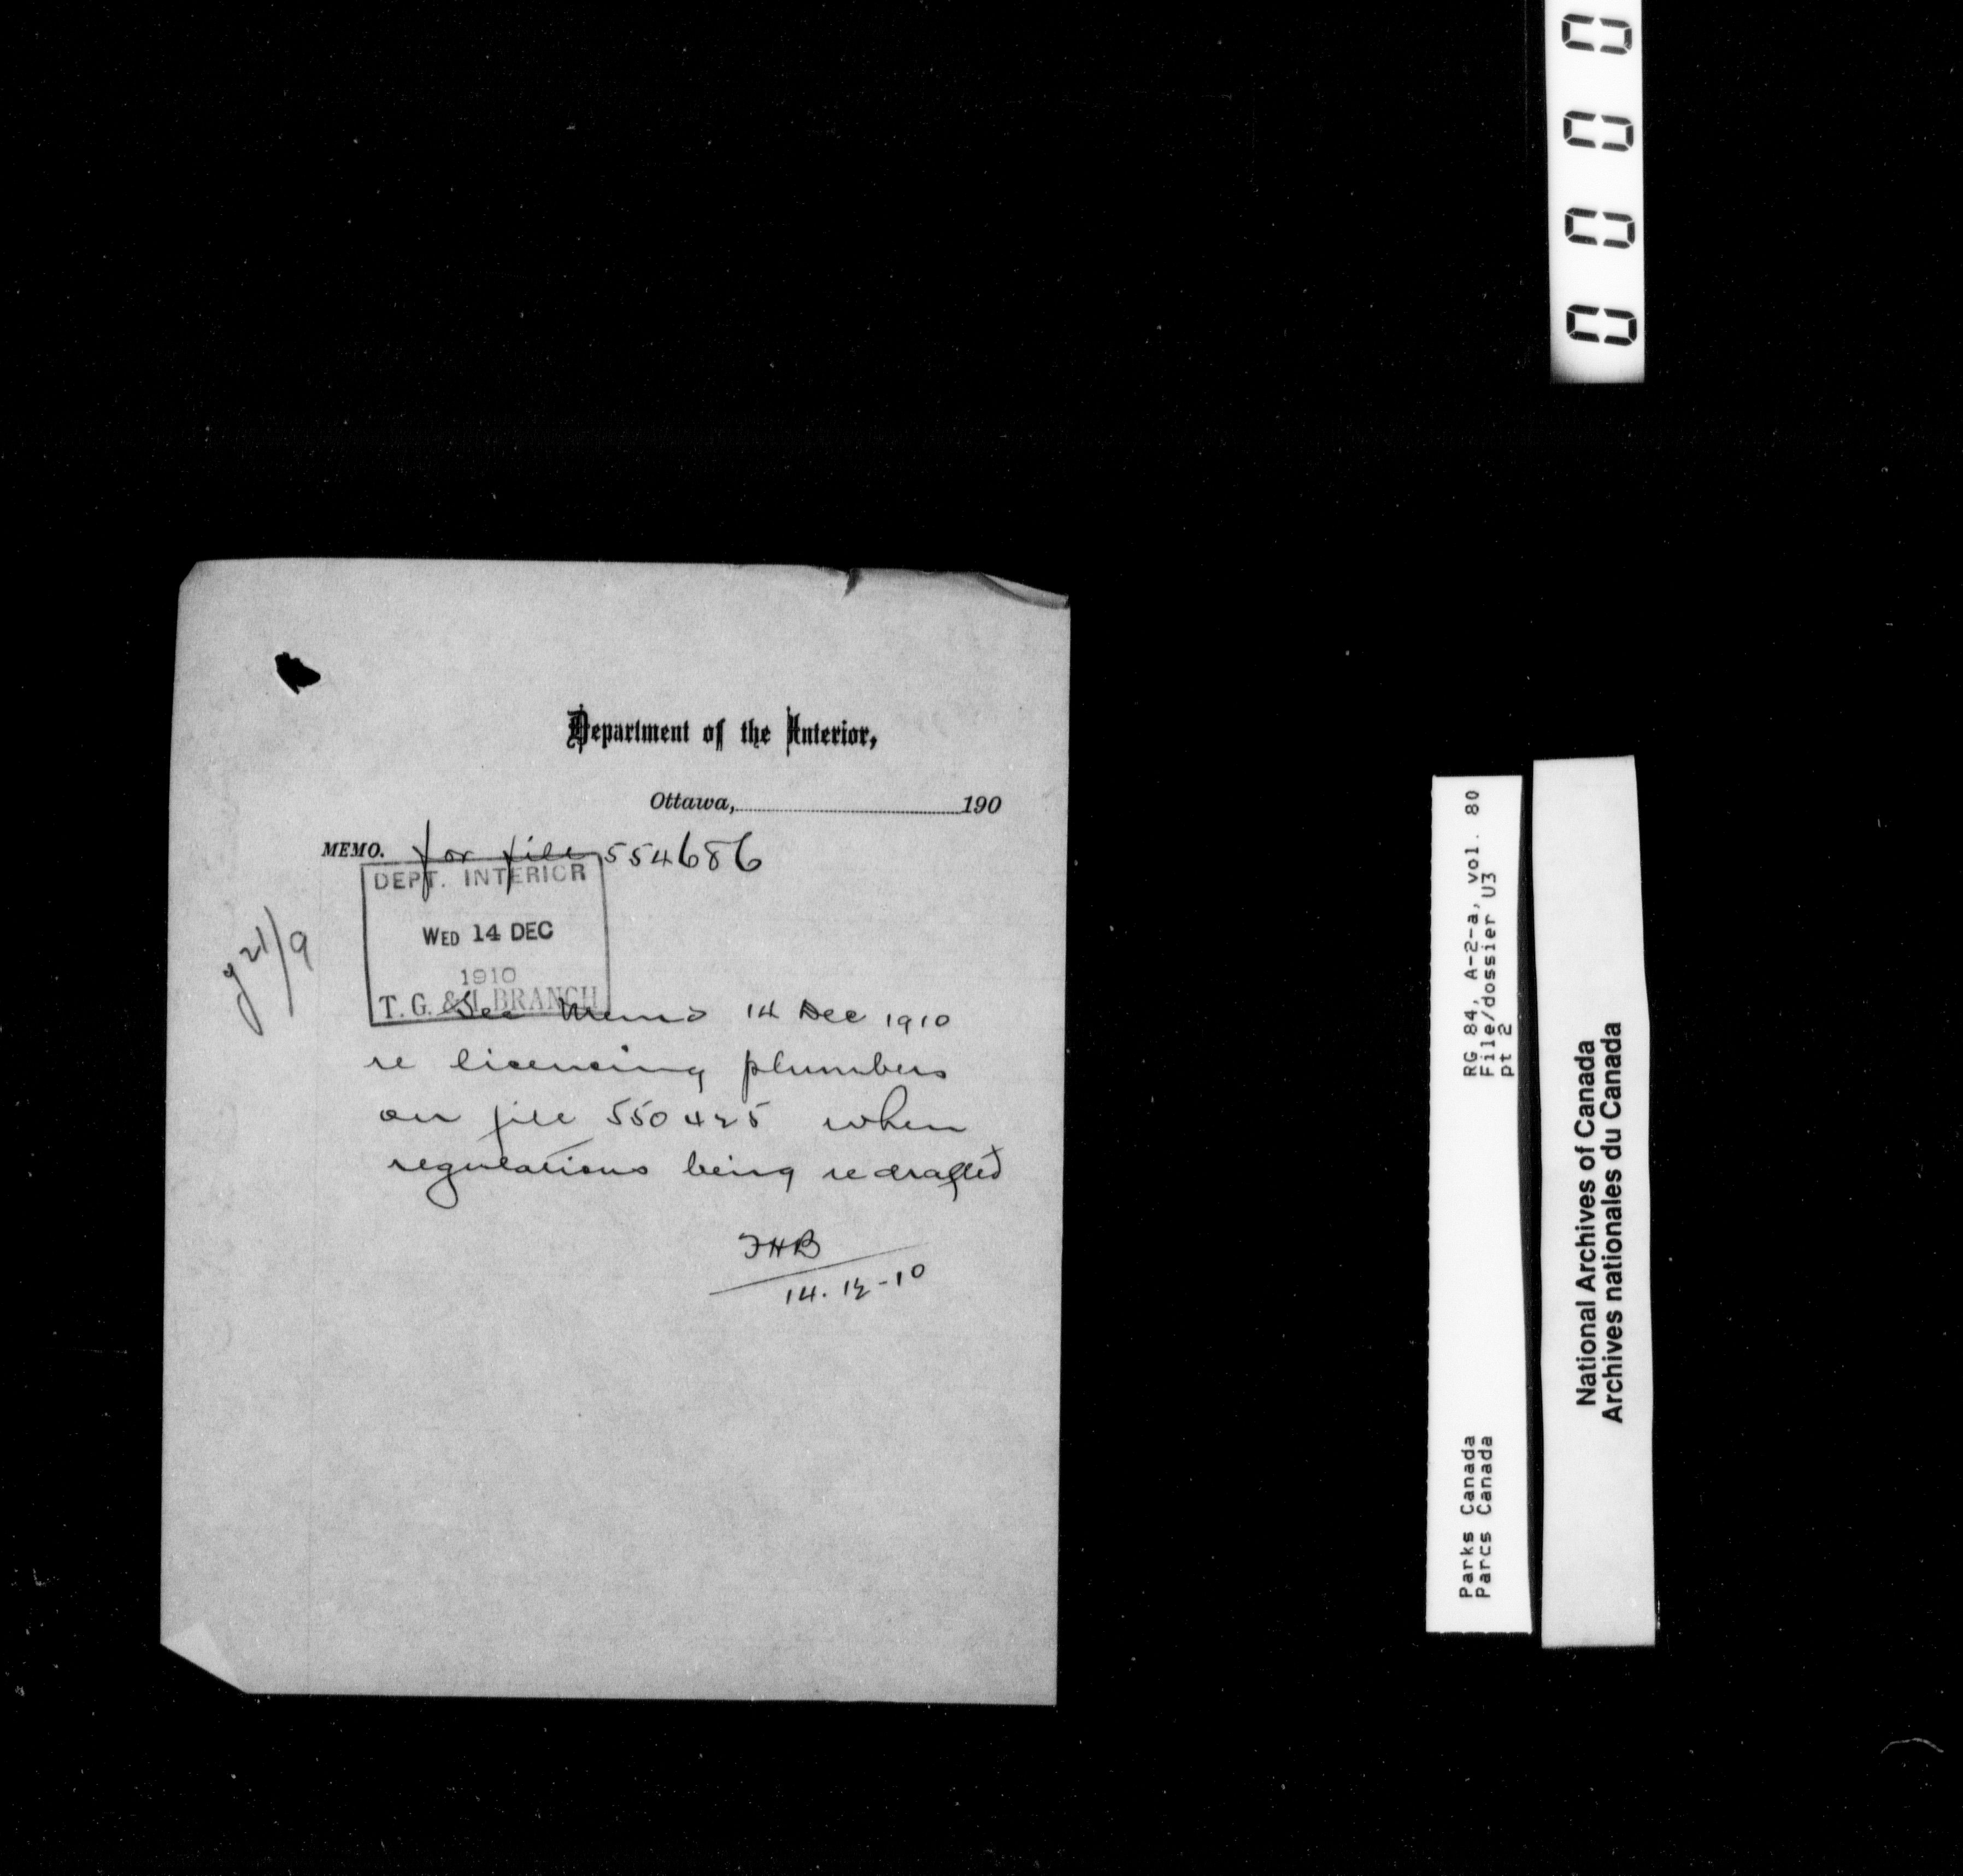 Department of the Interior,
Ottawa, 190
MEMO. for file 554686
DEPT. INTERIOR
WED 14 DEC
1910
T. G. & I. BRANCH
See Memo 14 Dec 1910
re licensing plumbers
on file 550425 when
regulations being redrafted
FHB
14.12-10
21/9
0000
RG 84, A-2-a, vol. 80
File/dossier U3
pt 2
Parks Canada
Parcs Canada
National Archives of Canada
Archives nationales du Canada